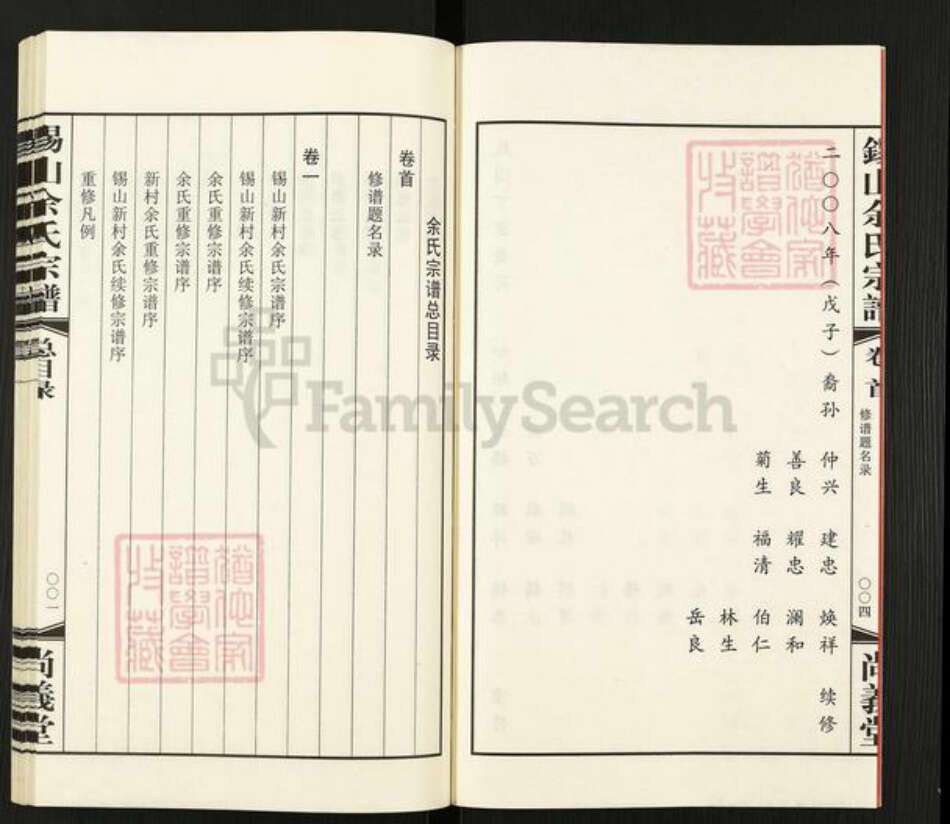 錫山余氏宗譜
卷首
修谱题名录
〇〇四
尚義堂
二〇〇八年（戊子）裔孙 仲兴 建忠 焕祥 续修
善良 耀忠 澜和
菊生 福清 伯仁
林生
岳良
余氏宗谱总目录
卷首
修谱题名录
卷一
锡山新村余氏宗谱序
锡山新村余氏续修宗谱序
余氏重修宗谱序
余氏重修宗谱序
新村余氏重修宗谱序
锡山新村余氏续修宗谱序
重修凡例
锡山余氏宗譜
总目录
〇〇一
尚義堂
猶他家譜學會收藏
猶他家譜學會收藏
FamilySearch